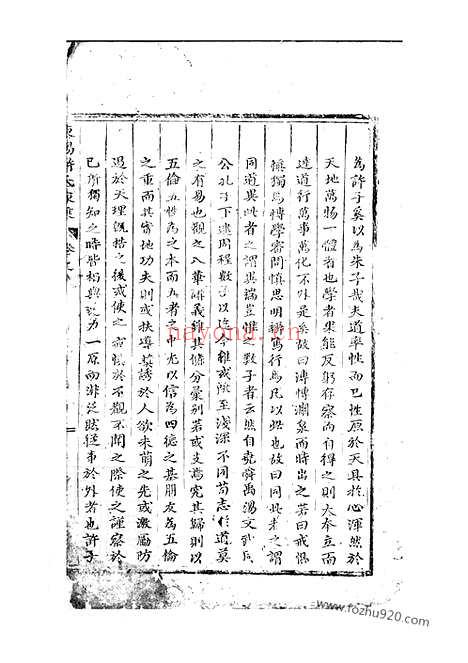 為許子奚以為朱子哉夫道率性而已性原於天具於心渾然於
天地萬物一體者也學者果能反躬存察而自得之則大本立而
達道行萬事萬化不外是矣故曰溥博淵泉而時出之若曰戒懼
慎獨為博學審問慎思明辯篤行焉凡以此也故曰同此者之謂
同道異此者之謂異端豈惟數子者云然自堯舜禹湯文武周
公孔子下逮周程數子以迄本雖或深至淺深不同苟志於道莫
之有易也觀之八華講義雖其條分彙別若或支焉究其歸則以
五倫五性為之本而五者之中尤以信為四德之基朋友為五倫
之重而其實地功夫則或扶導葉誘於人欲未萌之先或激厲防
遏於天理既牿之後或使之寂惕於不觀不聞之際使之謹察於
已所獨知之時皆相與致力一原而非泛然從事於外者也許子
東陽許氏家乘
nayong.cn
www.fozhu920.com